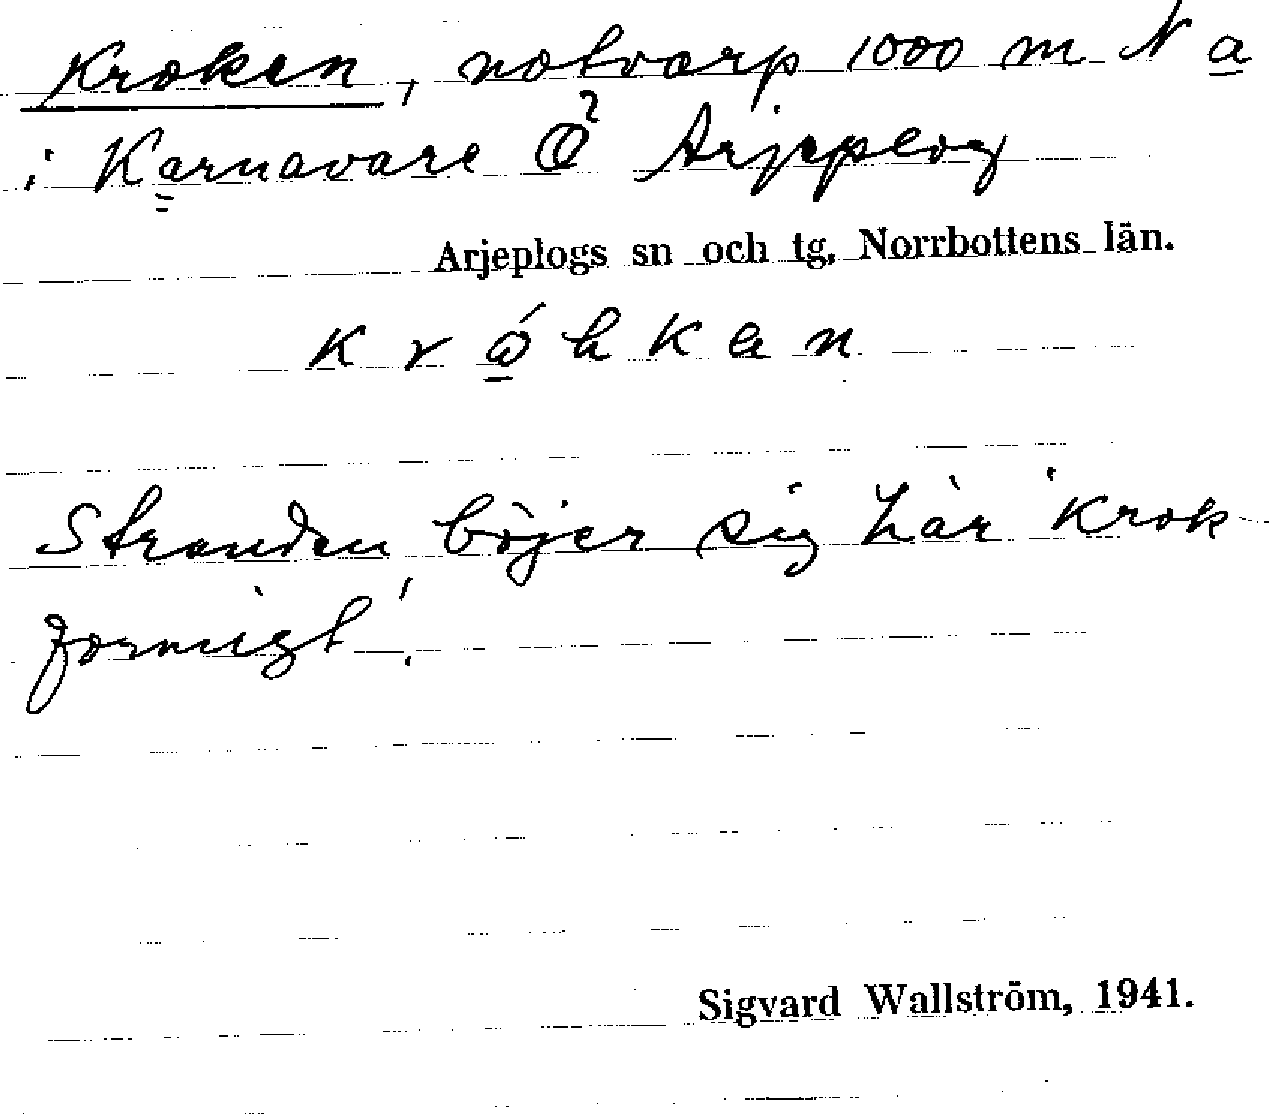 Kroken, notvarp 1000 m N a
i Karnavare Ö Arjeplog
Arjeplogs sn och tg, Norrbottens län.
k r ó h k e n
Stranden böjer sig här "krok
formigt".
Sigvard Wallström, 1941.